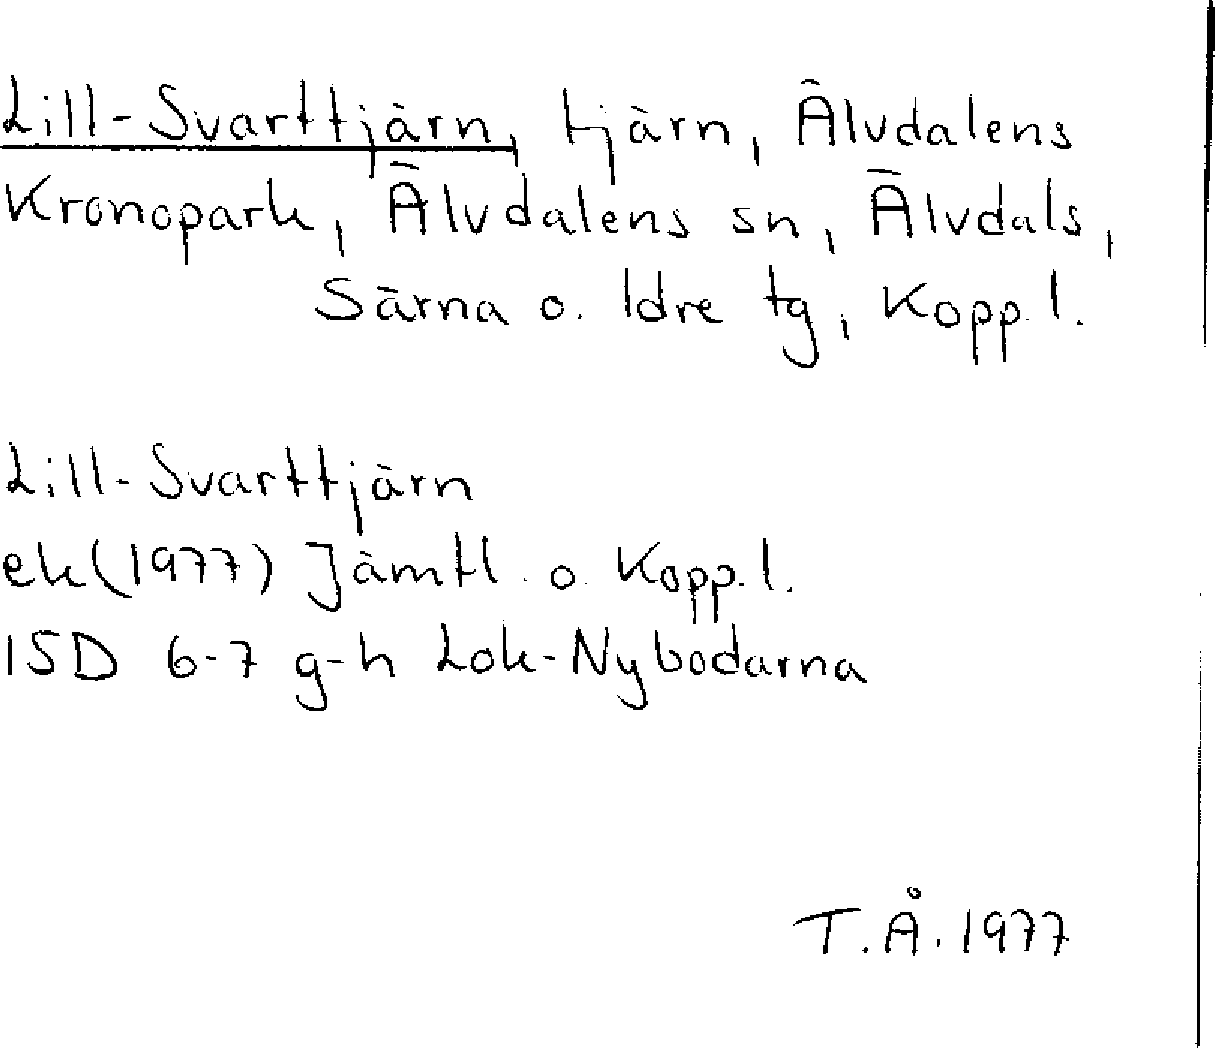 Lill-Svarttjärn, tjärn, Älvdalens
Kronopark, Älvdalens sn, Älvdals,
Särna o. Idre tg, Kopp. l.
Lill-Svarttjärn
ek (1977) Jämtl. o. Kopp. l.
15D 6-7 g-h Lok-Nybodarna
T.Å. 1977